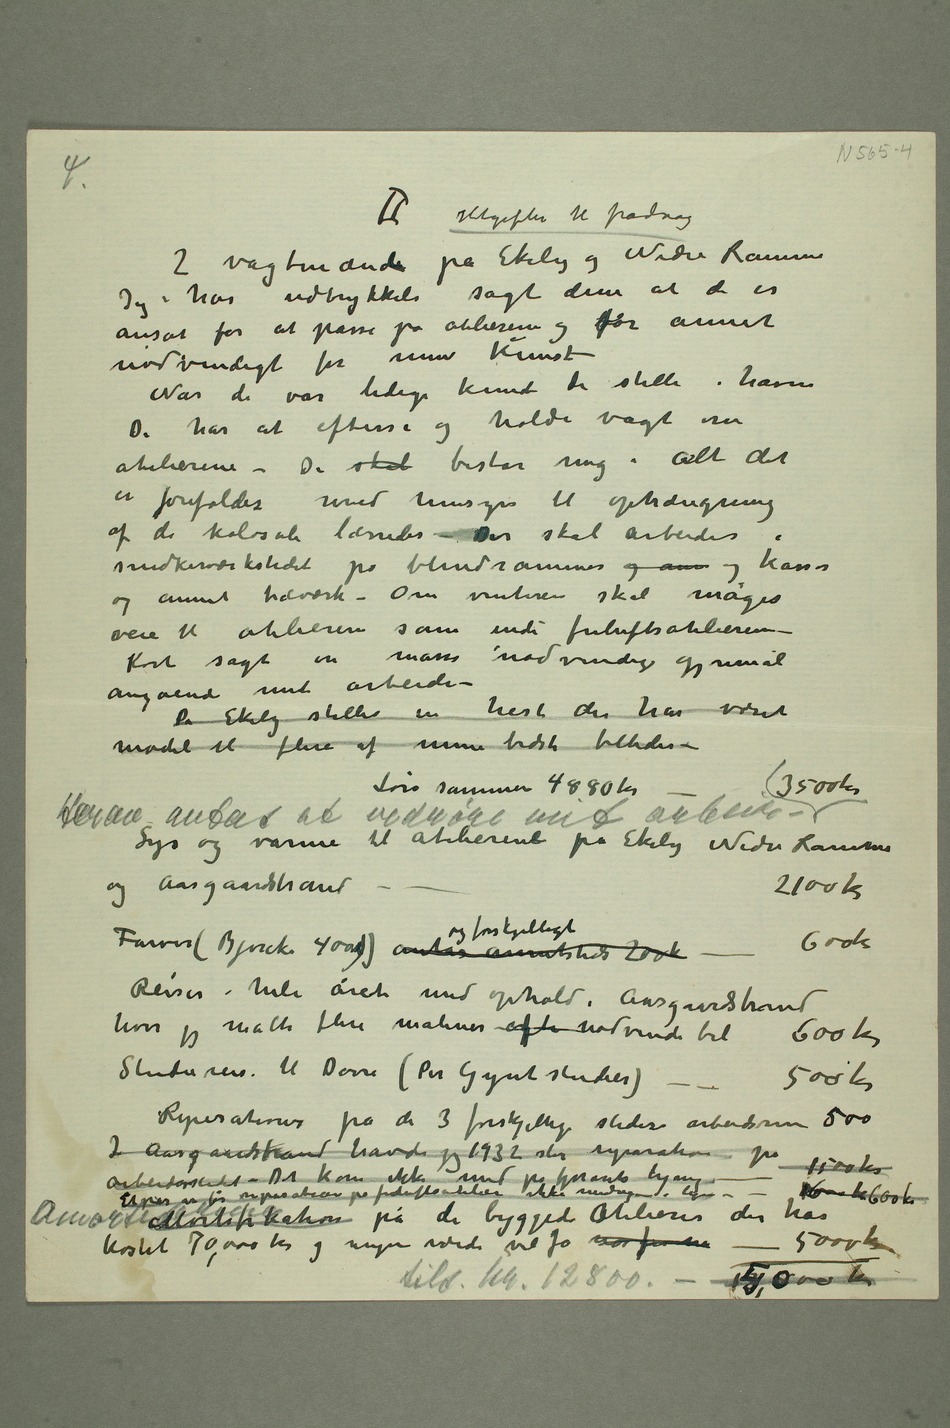 4.
N 565-4
II Utgifter til fradrag
2 vagtmænd på Ekely og Nedre Ramme
Jeg har udtrykkeli sagt dem at de er
ansat for at passe på atelierene og for annet
nødvendigt for min Kunst
Når de var ledige kunde de stelle i haven
De har at efterse og holde vagt om
atelierene – De skal består mig i alt det
er forefalder med hensyn til ophængning
af de kolosale lærreder – Der skal arbeides i
snedkerværkstedet på blindrammer og an og kasser
og annet træværk – Om vinteren skal måges
veie til atelierene som inde friluftsatelierene –
Kort sagt en masse nødvendige gjøremål
angående mit arbeide –
På Ekely stelles en hest der har været
model til flere af mine bedste billeder –
Løn sammen 4880 kr — (3500 kr
Herav antas at vedrøre mit arbeide –
Lys og varme til atelierene på Ekely Nedre Ramme
og Aasgaardstrand – — 2100 kr
og forskjelligt
Farver (Bjercke 400) antar annetsteds 200 k — 600k
Reiser i hele året med ophold i Aasgaardstrand
hvor jeg malte flere malerier ofte nødvendi bil 600 kr
Studiereise til Dovre (Per Gynt studier) — — 500 kr
Reperationer på de 3 forskjellige steders arbeidsrum 500
I Aasgaardstrand havde jeg 1932 stor reparation på
arbeidsstedet – Det kom ikke med på forrige ligning — 1500 kr
600 kr
Amortisation
Mortifikation på de byggede Atelierer der har
kostet 70,000 kr og ingen værdi vil få — 5000 k
tils. kr. 12800. – 15,000 kr